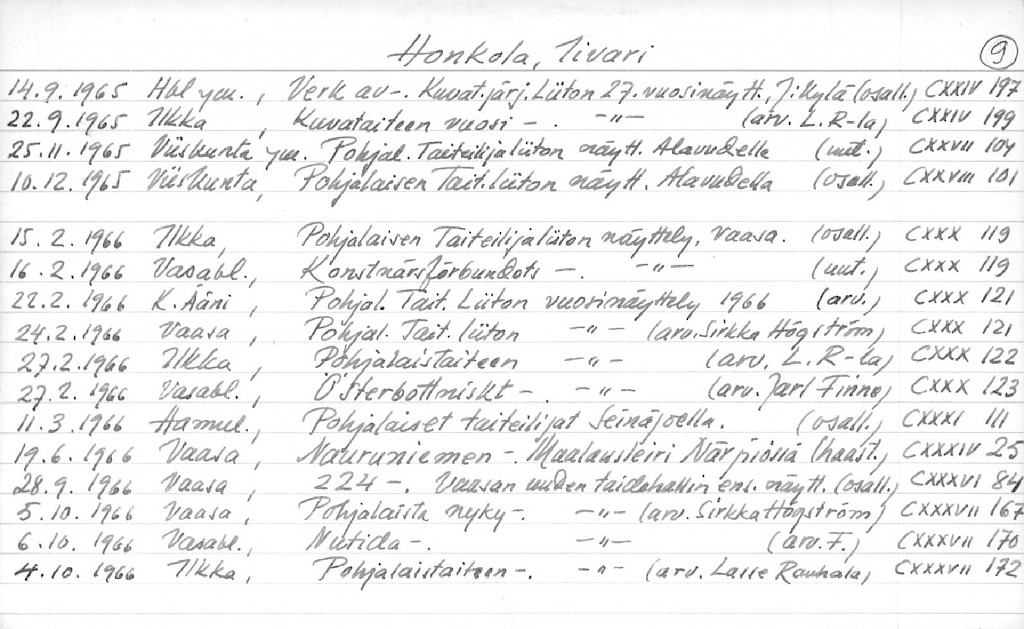 Honkola, Iivari 9
14.9.1965 Hbl ym., Verk av-. Kuvat.järj. Liiton 27. vuosinäytt., J:kylä (osall.) CXXIV 197
22.9.1965 Ilkka, Kuvataiteen vuosi -. -"- (arv. L.R-la) CXXIV 199
25.11.1965 Viiskunta ym. Pohjal. Taiteilijaliiton näytt. Alavudella (uut.) CXXVII 104
10.12.1965 Viiskunta, Pohjalaisen Tait.liiton näytt. Alavudella (osall.) CXXVIII 101
15.2.1966 Ilkka, Pohjalaisen Taiteilijaliiton näyttely, Vaasa. (osall.) CXXX 119
16.2.1966 Vasabl., Konstnärsförbundets -. -"- (uut.) CXXX 119
22.2.1966 K. Ääni, Pohjal. Tait. Liiton vuosinäyttely 1966 (arv.) CXXX 121
24.2.1966 Vaasa, Pohjal. Tait. liiton -"- (arv. Sirkka Högström) CXXX 121
27.2.1966 Ilkka, Pohjalaistaiteen -"- (arv. L.R-la) CXXX 122
27.2.1966 Vasabl., Österbottniskt -. -"- (arv. Jarl Finne) CXXX 123
11.3.1966 Hämul., Pohjalaiset taiteilijat Seinäjoella. (osall.) CXXXI 111
19.6.1966 Vaasa, Nauruniemen -. Maalausleiri Närpiössä (haast.) CXXXIV 25
28.9.1966 Vaasa, 224 -. Vaasan uuden taidehallin ens. näytt. (osall.) CXXXVI 84
5.10.1966 Vaasa, Pohjalaista nyky-. -"- (arv. Sirkka Högström) CXXXVII 167
6.10.1966 Vasabl., Nutida -. -"- (arv. F.) CXXXVII 170
4.10.1966 Ilkka, Pohjalaistaiteen -. -"- (arv. Lasse Rauhala) CXXXVII 172